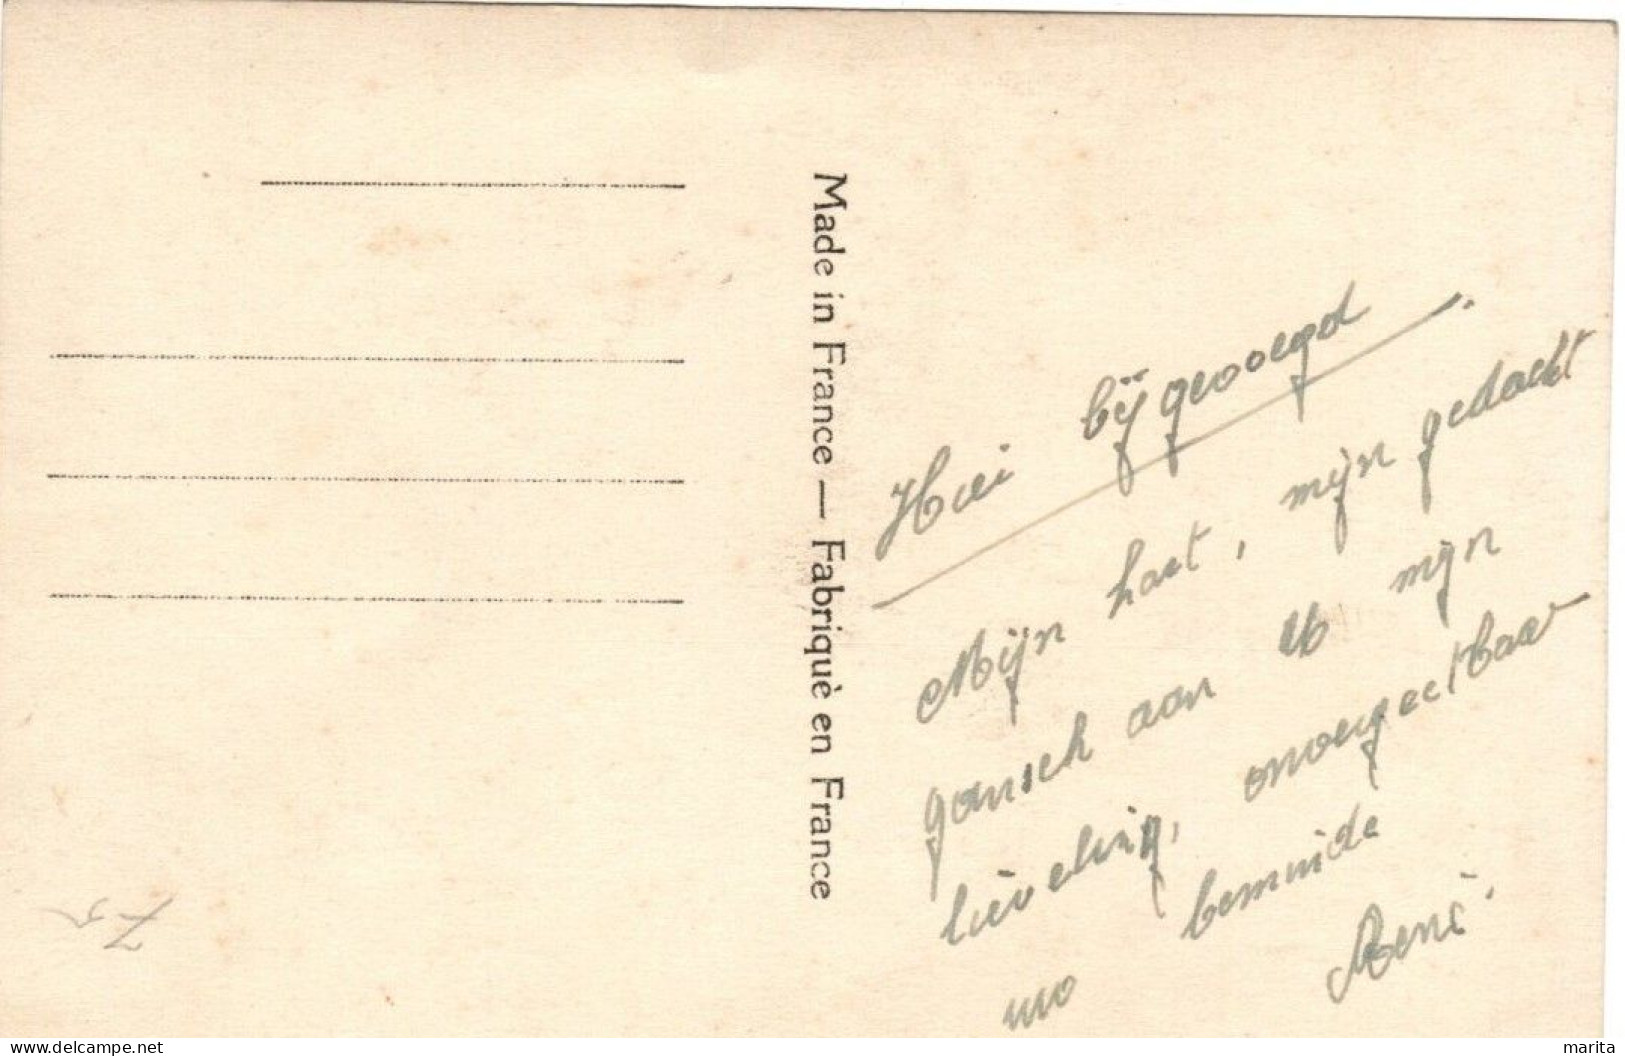 Made in France — Fabriquè en France
Hier bijgevoegd
Mijn hart, mijn gedacht
gansch aan U mijn
lieveling, onvergeetbare
uw beminde
René.
75
www.delcampe.net
marita